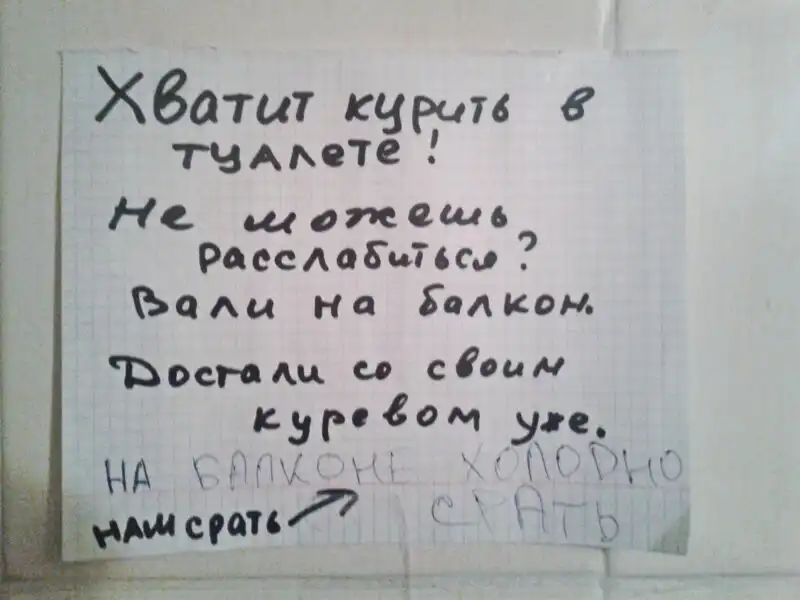 Хватит курить в
туалете!
Не можешь
расслабиться?
Вали на балкон.
Достали со своим
куревом уже.
НА БАЛКОНЕ ХОЛОДНО
СРАТЬ
нам срать